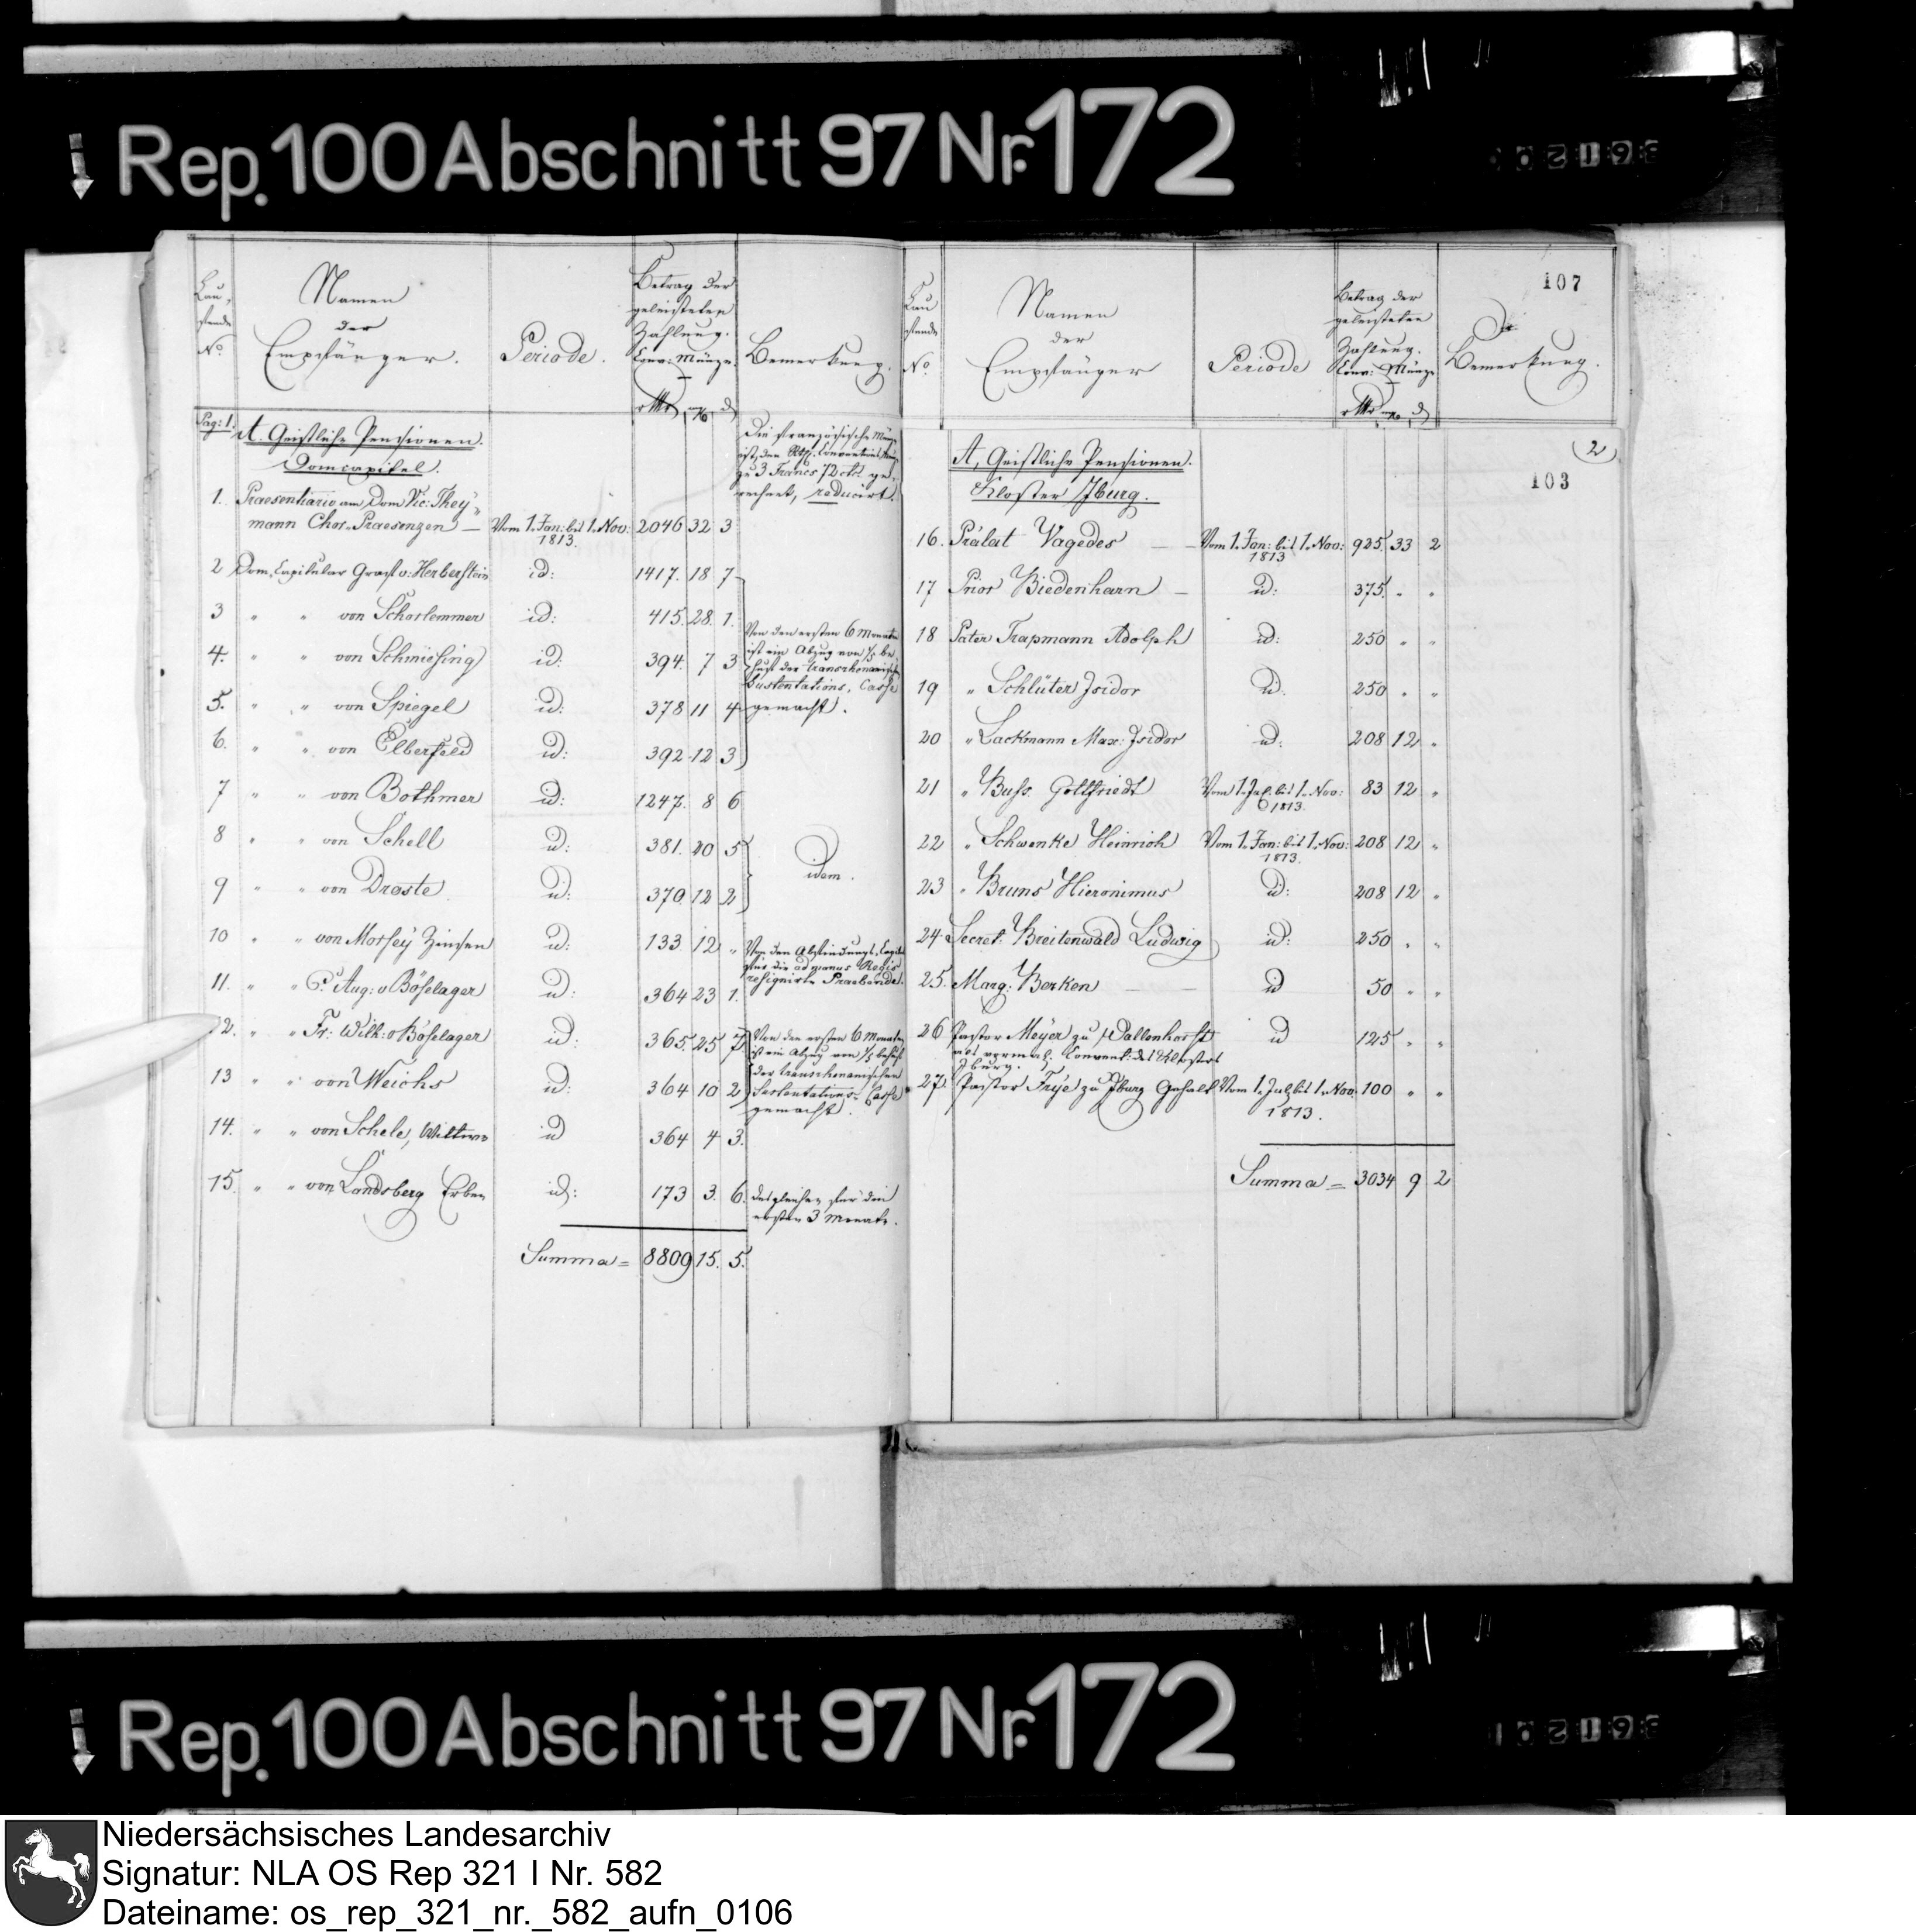 Rep. 100 Abschnitt 97 Nr. 172
Lau-
fende
No
Namen
der
Empfänger.
Periode.
Betrag der
geleisteten
Zahlung.
Conv: Münze.
Bemerkung.
Pag: 1. A. Geistliche Pensionen.
Domcapitel.
Die französische Münze
ist, den Rthlr. Conventions Münze
zu 3 Francs 72 cts. ge-
rechnet, reducirt.
1. Praesentiario am Dom Vic: They-
mann Chor-Praesenzen — Vom 1. Jan: bis 1. Nov: 1813. 2046 32 3
2 Dom-Capitular Graf v: Herberstein id: 1417. 18 7
3 " " von Schorlemmer id: 415. 28. 1.
4. " " von Schmiesing id: 394. 7 3
5. " " von Spiegel id: 378 11 4
6. " " von Elberfeld id: 392 12 3
Von den ersten 6 Monaten
ist ein Abzug von 1/5 be-
huf der transrhenanischen
Sustentations-Casse
gemacht.
7 " " von Bothmer id: 1247. 8 6
8 " " von Schell id: 381. 20 5
9 " " von Droste id: 370. 12 2
idem.
10 " " von Morsey Zinsen id: 133. 12 "
Von dem Abfindungs-Capital
für die ad manus Regis
resignirte Praebende.
11. " " C. Aug: v Böselager id: 364 23 1.
12. " " Fr: Wilh: v Böselager id: 365. 25 7
13 " " von Weichs id: 364 10 2
Von den ersten 6 Monaten
ist ein Abzug von 1/5 behuf
der transrhenanischen
Sustentations-Casse
gemacht.
14. " " von Schele, id 364 4 3.
15. " " von Landsberg Erben id: 173 3. 6. desgleichen für die
ersten 3 Monate.
Summa = 8809 15. 5.
107
Lau
fende
No
Namen
der
Empfänger
Periode
Betrag der
geleisteten
Zahlung.
Conv: Münze
Bemerkung.
2
103
A, Geistliche Pensionen.
Kloster Iburg.
16. Prälat Vagedes — Vom 1. Jan: bis 1. Nov: 1813 925. 33 2
17 Prior Biedenharn — id: 375. " "
18 Pater Trapmann Adolph id: 250 " "
19 " Schlüter Isidor id. 250 " "
20 " Lackmann Max: Isidor id. 208 12 "
21 " Buss. Gottfriedt Vom 1. Jul. bis 1. Nov: 1813. 83 12 "
22 " Schwenke Heinrich Vom 1. Jan: bis 1. Nov: 1813. 208 12 "
23 " Bruns Hieronimus id: 208 12 "
24. Secret: Breitenwald Ludwig id: 250 " "
25. Marg: Berken — id 50 " "
26 Pastor Meyer zu Wallenhorst id 125 " "
als vormal: Convent: des Klosters
Iburg.
27. Pastor Frye zu Iburg Gehalt Vom 1. Jul bis 1. Nov: 1813. 100 " "
Summa = 3034 9 2
Rep. 100 Abschnitt 97 Nr. 172
Niedersächsisches Landesarchiv
Signatur: NLA OS Rep 321 I Nr. 582
Dateiname: os_rep_321_nr._582_aufn_0106